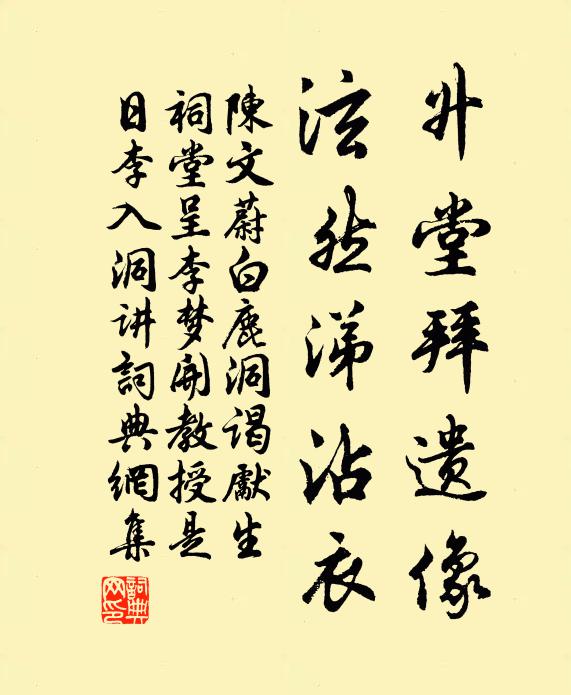 升堂拜遗像
泫然涕沾衣
陳文蔚白鹿洞谒獻生
祠堂呈李梦開教授是
日李入洞讲詞典網集
詞典网印